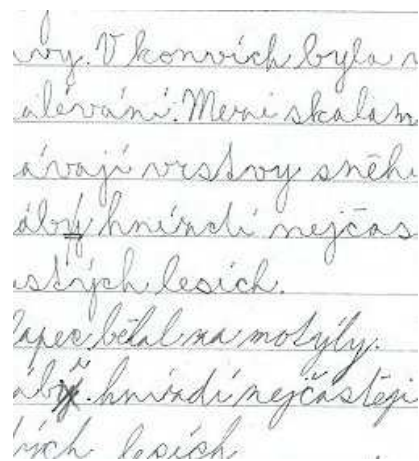 vy. V konvích byla
alévání. Mezi skalam
ávají vrstvy sněh
áby hnízdí nejčas
stých lesích.
lapec běhal za motýly.
hnízdí nejčastěji
ých lesích